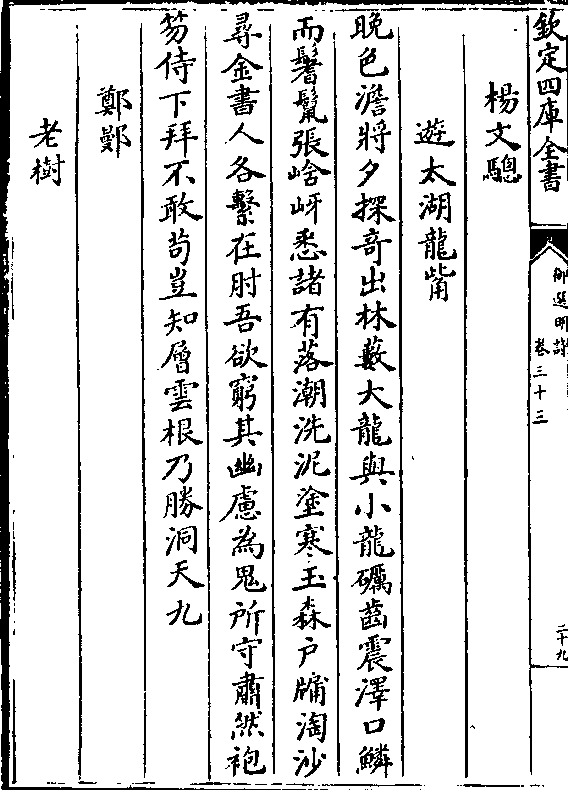 欽定四庫全書
御選明詩
卷三十三
二十九
楊文驄
遊太湖龍嘴
晚色澹將夕探奇出林藪大龍與小龍礪齒震澤口鱗
而鬐鬛張啥岈悉諸有落潮洗泥塗寒玉森戶牖淘沙
尋金書人各繫在肘吾欲窮其幽慮為鬼所守肅然袍
笏侍下拜不敢苟豈知層雲根乃勝洞天九
鄭鄤
老樹